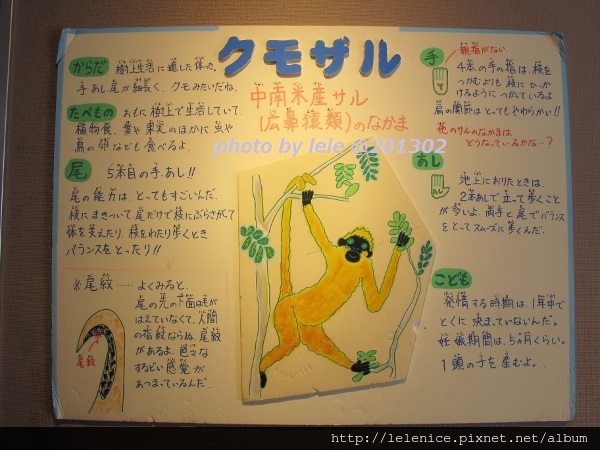 クモザル
中南米産サル
(広鼻猿類)のなかま
からだ
樹上生活に適した体つき。
手あし尾が細長く、クモみたいだね。
たべもの
おもに樹上で生活していて、
植物食、葉や果実のほかに虫や
鳥の卵なども食べるよ。
尾
5本目の手あし!!
尾の能力は、とってもすごいんだ。
枝にまきついて、尾だけで枝にぶらさがって
体を支えたり、枝をわたり歩くとき
バランスをとったり!!
※尾紋……よくみると、
尾の先の下面は毛が
はえていなくて、人間
の指紋ならぬ、尾紋
があるよ。色々な
するどい感覚が
あつまっているんだ。
尾紋
手
親指がない
4本の手の指は、枝を
つかむよりも枝にひっか
けるようにつかっているよ。
肩の関節はとってもやわらかい!!
他のサルのなかまは
どうなっているかな…?
あし
地上におりたときは、
2本あしで立って歩くこと
が多いよ。両手と尾でバランス
をとってスムーズに歩くんだ。
こども
発情する時期は、1年中で
とくに決まっていないんだ。
妊娠期間は、5ヵ月くらい。
1頭の子を産むよ。
photo by lele @201302
http://lelenice.pixnet.net/album